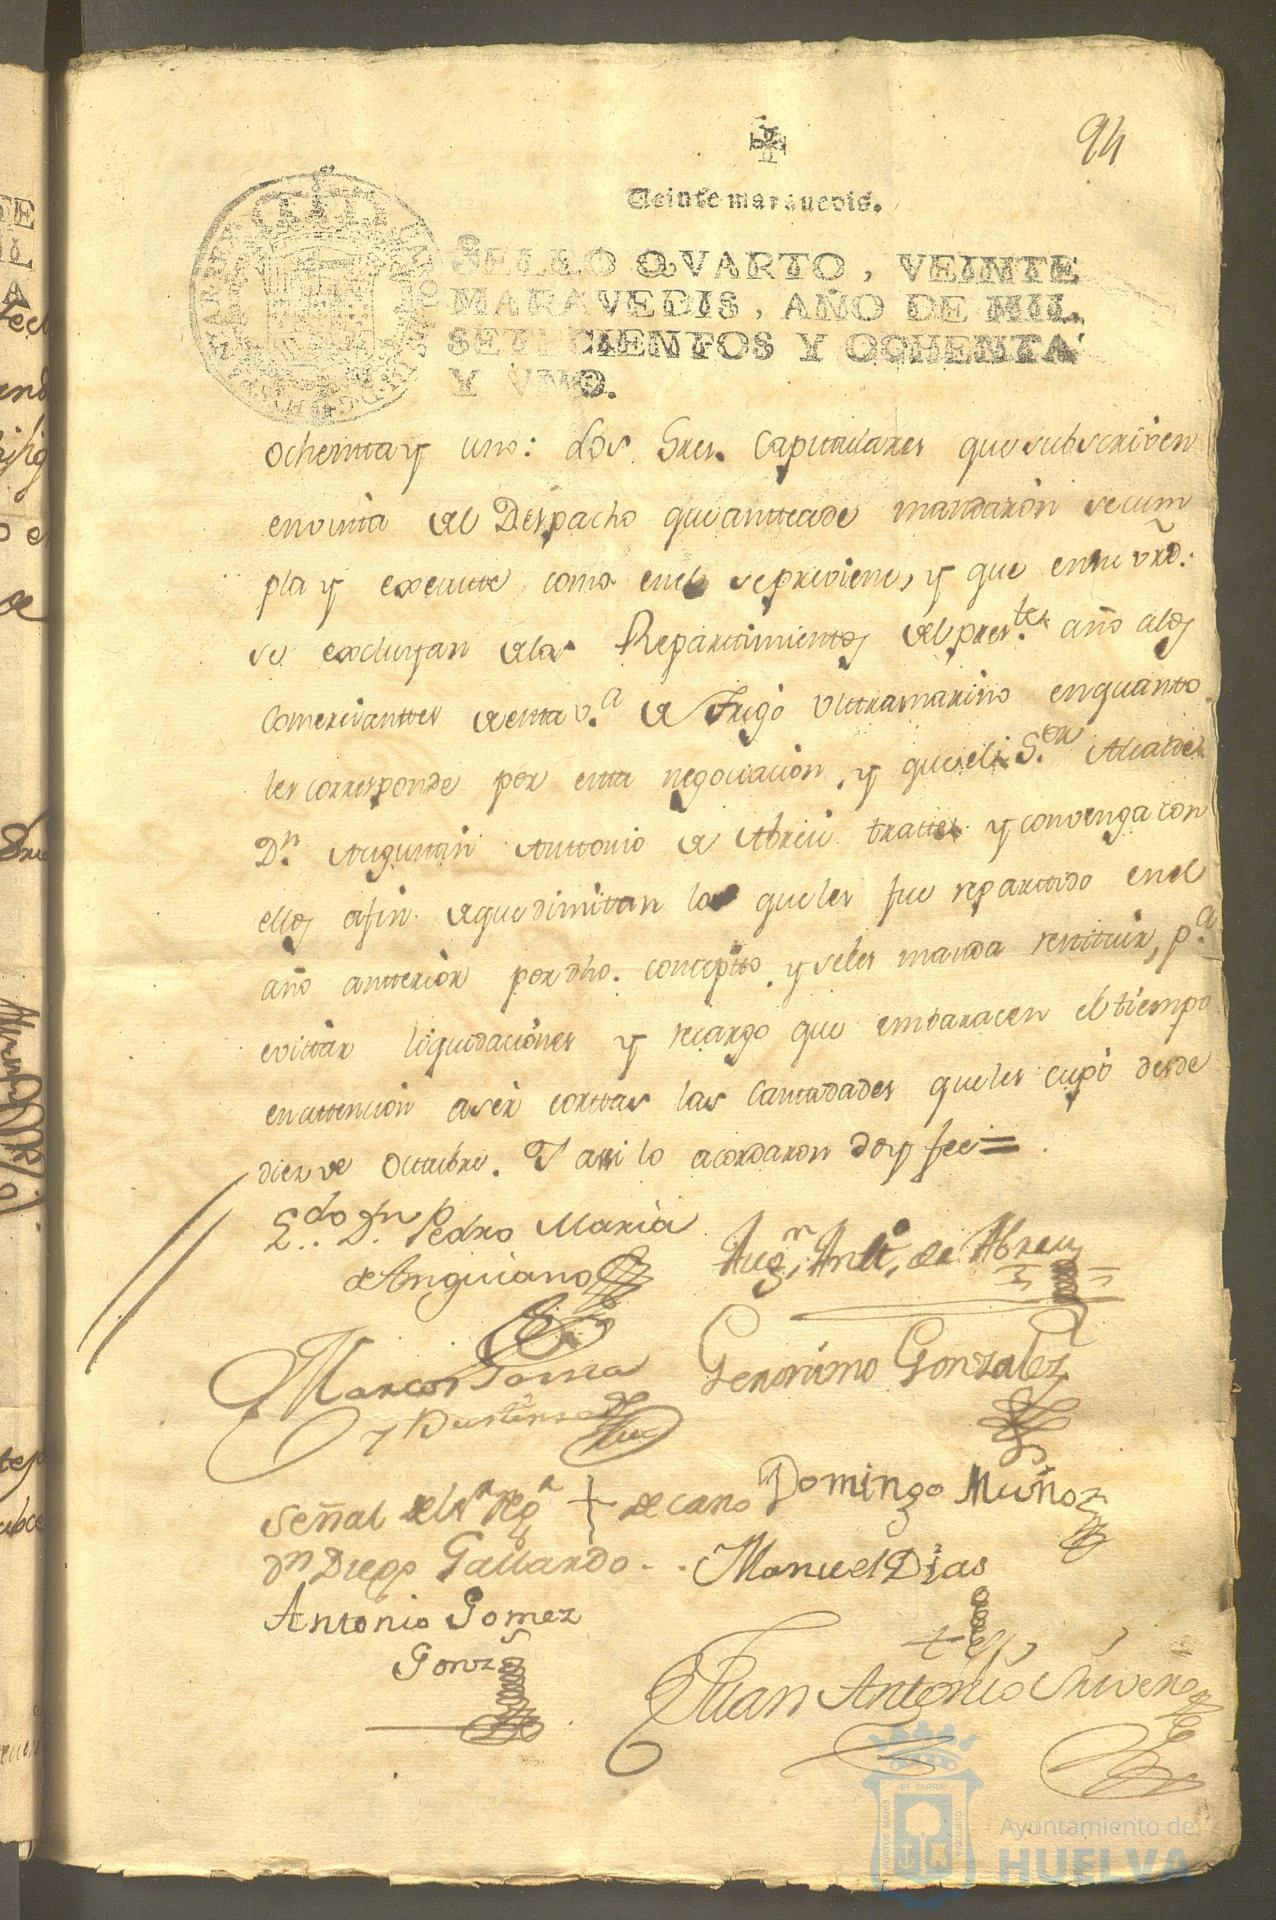 94
Veinte maravedis.
SELLO QVARTO, VEINTE
MARAVEDIS, AÑO DE MIL
SETECIENTOS Y OCHENTA
Y VNO.
ochentta y uno: Los Sres. Capitulares que subscriven
en vista del Despacho que antecede mandaron se cum
pla y execute como en el se previene, y que en su vrd.
se excluyan de los Repartimientos del pres.te año a los
Comerciantes de esta v.a de Trigo Ultramarino en quanto
les corresponde por esta negociacion, y que el S.or Alcalde
D.n Augustin Anttonio de Abreu tratte y convenga con
ellos a fin de que dimitan lo que les fue reparttido en el
año antterior por dho. concepto y se les manda restituir, p.a
evittar liquidaciones y recargo que embaracen el tiempo
en attencion a ser corttas las cantidades que les cupo desde
dies de Octubre. Y assi lo acordaron doy fee=
L.do D.n Pedro Maria
de Anguiano
Aug.n Ant.o de Abreu
Marcos
y
Geronimo Gonzalez
Señal del + decano
Dn Diego Gallardo
Domingo Muñoz
Manuel Dias
Antonio Gomez
Gonz
Juan Antonio
Ayuntamiento de
HUELVA